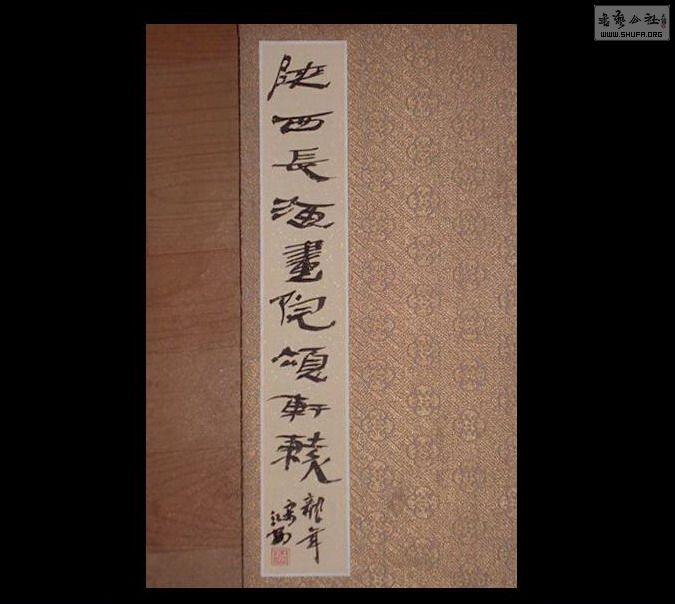 陝西長海畫院頌軒轅
龍年
書藝公社
WWW.SHUFA.ORG